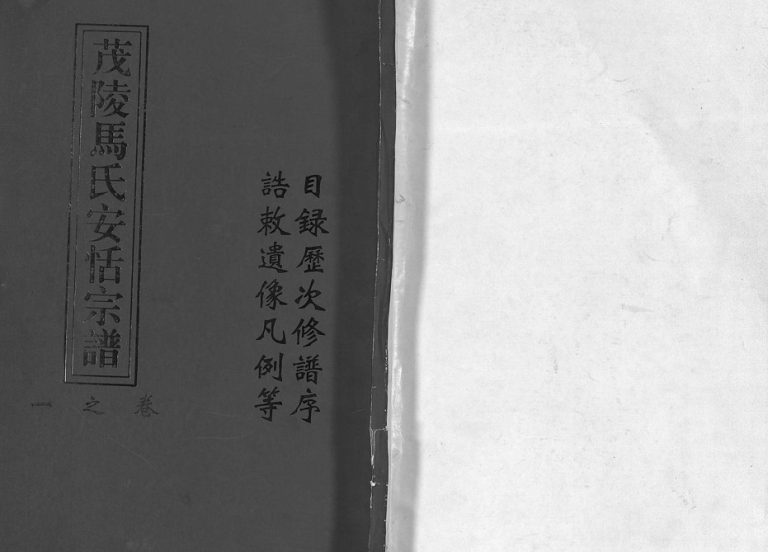 茂陵馬氏安恬宗譜
卷之一
目録歷次修譜序
誥敕遺像凡例等